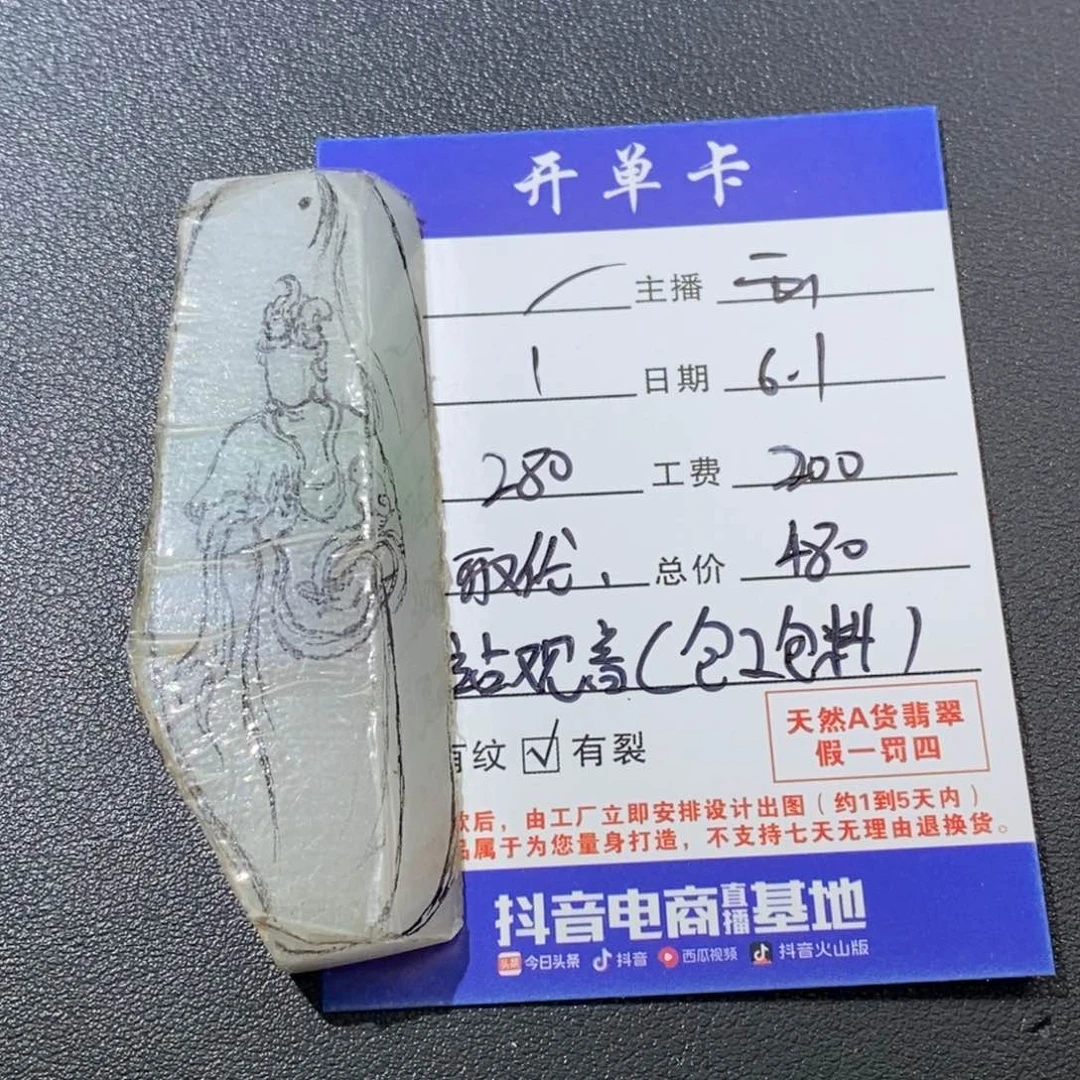 开单卡
主播
1 日期 6.1
280 工费 200
取优、 总价 480
站观音(包工包料)
有纹 ☑ 有裂
天然A货翡翠
假一罚四
款后，由工厂立即安排设计出图（约1到5天内）
品属于为您量身打造，不支持七天无理由退换货。
抖音电商直播基地
头条 今日头条 抖音 西瓜视频 抖音火山版